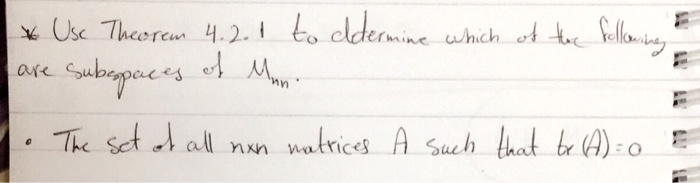 * Use Theorem 4.2.1 to determine which of the following
are subspaces of Mnn.
• The set of all nxn matrices A such that tr(A)=0